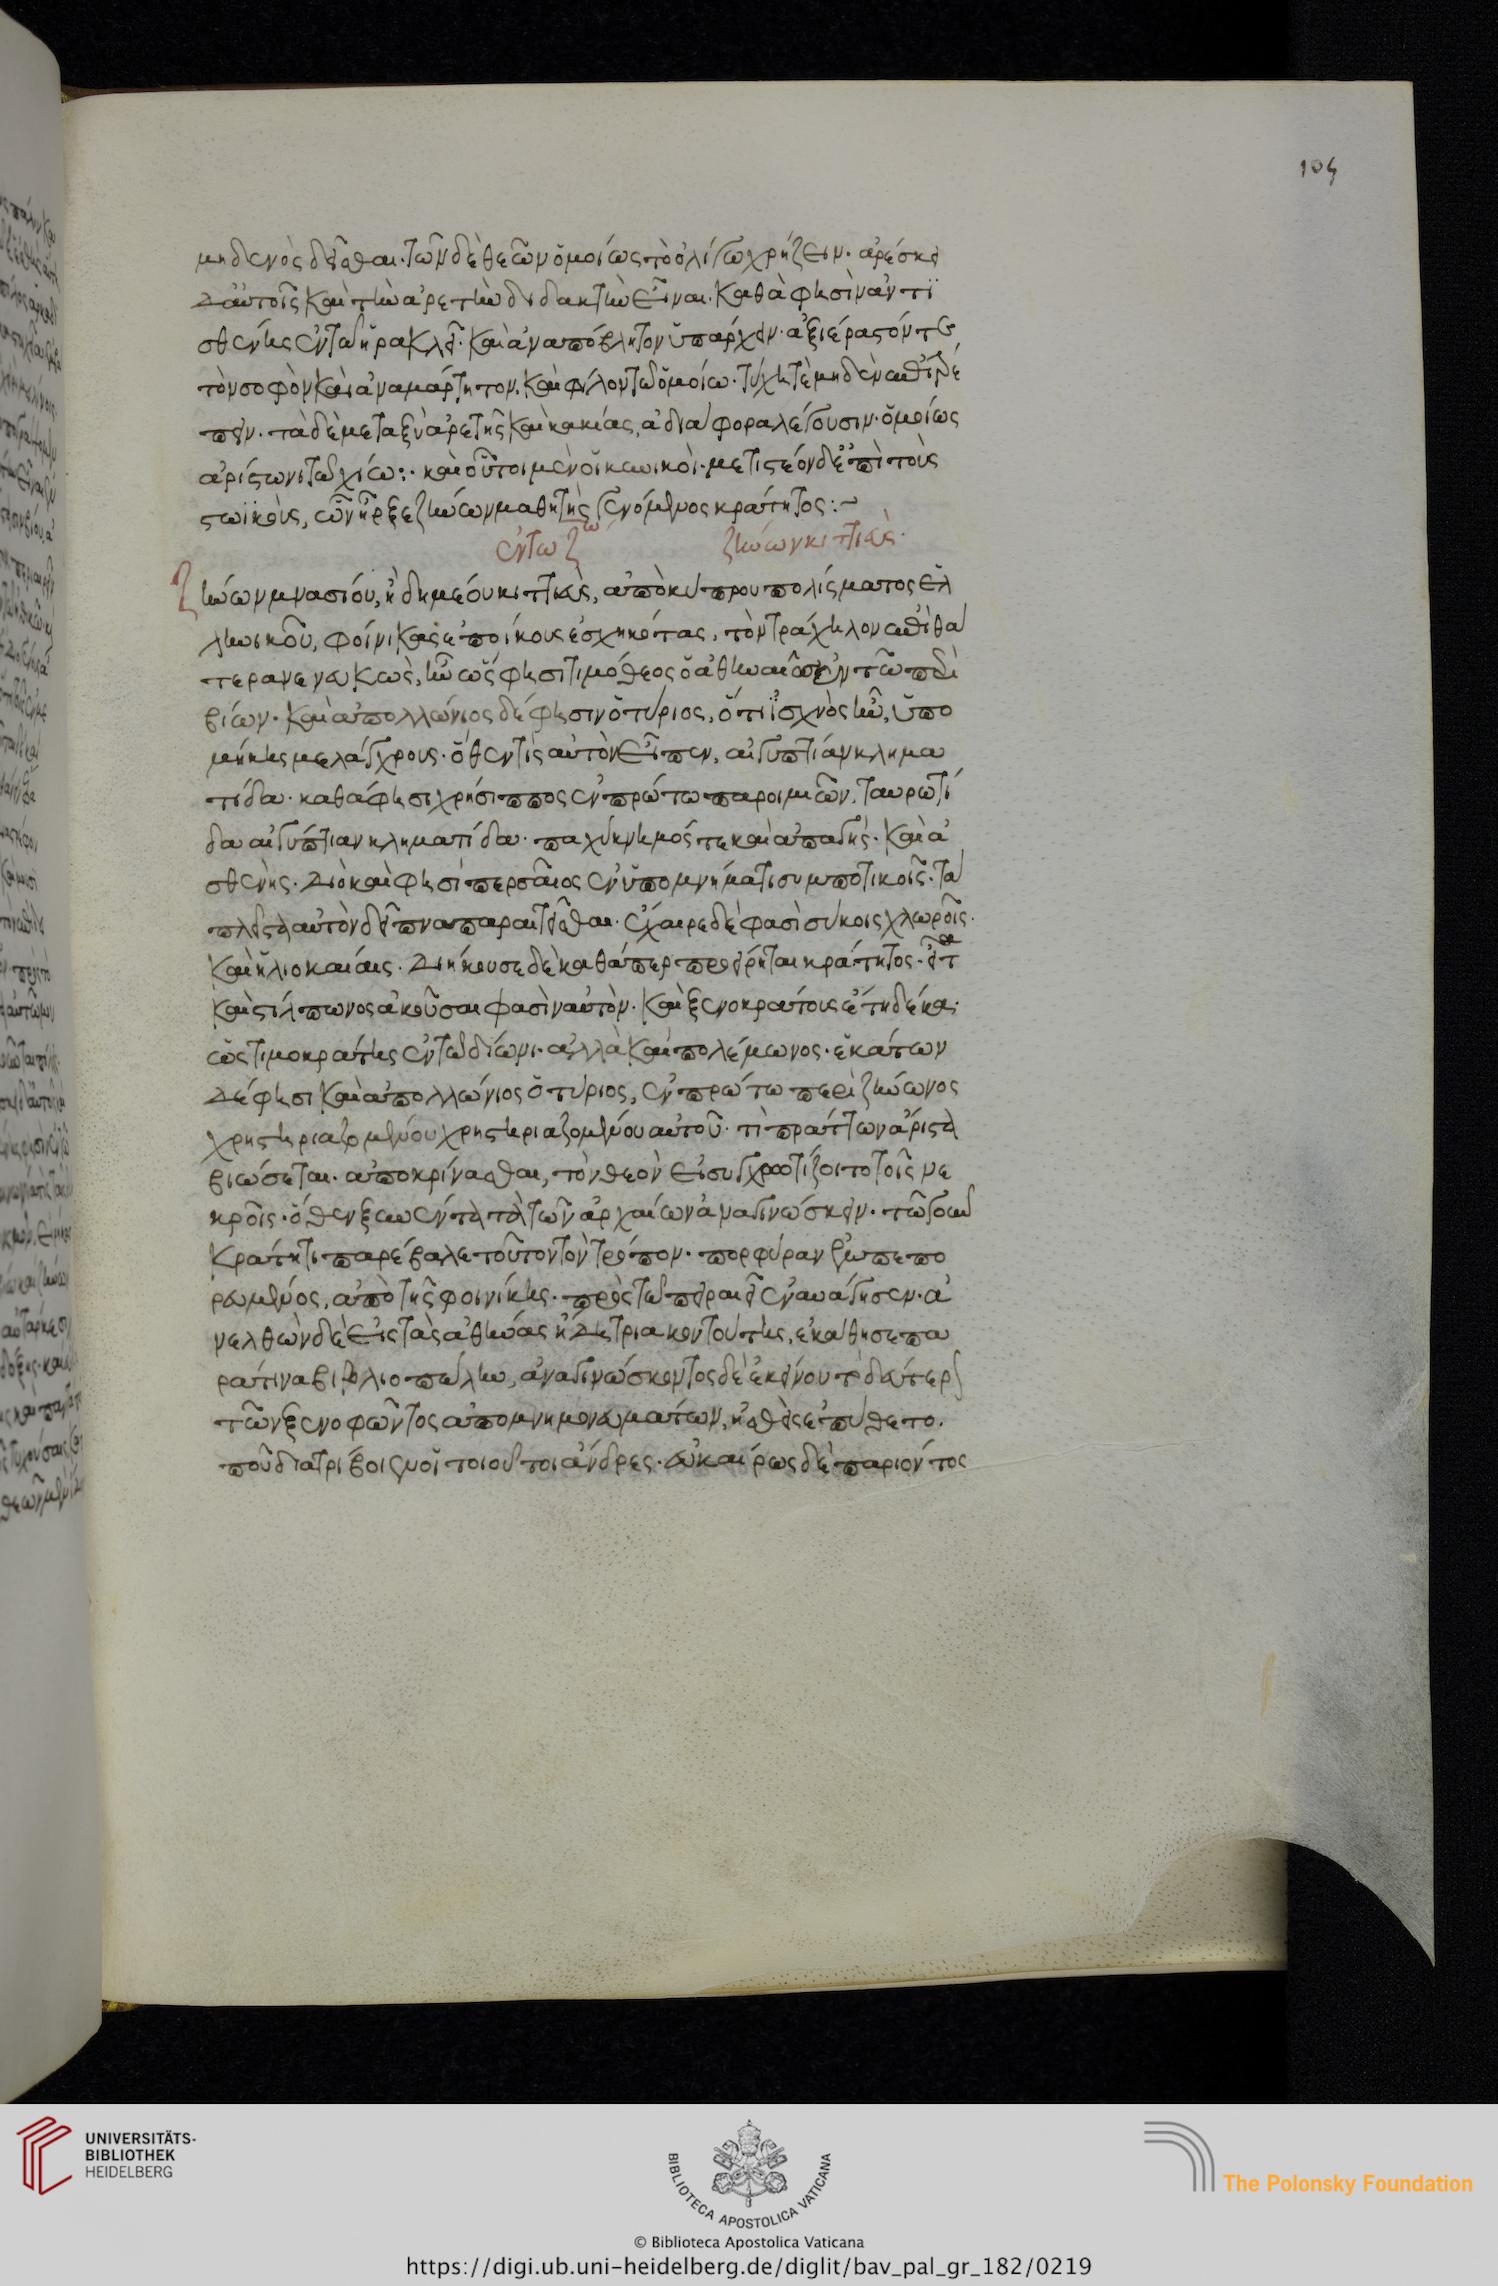 104
μηδενὸς δεῖσθαι· τῶν δὲ θεῶν ὁμοίως τὸ ὀλίγω χρήζειν· ἀρέσκει
δ' αὐτοῖς καὶ τὴν ἀρετὴν διδακτὴν εἶναι. καθὰ φησὶν ἀντι
σθένης ἐν τῶ ἡρακλεῖ· καὶ ἀναπόβλητον ὑπάρχειν· ἀξιέραστόν τε
τὸν σοφὸν καὶ ἀναμάρτητον, καὶ φίλον τῶ ὁμοίω· τύχη τὲ μηδὲν ἐπιτρέ
πειν. τὰ δὲ μεταξὺ ἀρετῆς καὶ κακίας, ἀδιάφορα λέγουσιν· ὁμοίως
ἀρίστωνι τῶ χίω:· καὶ οὗτοι μὲν οἱ κυνικοὶ· μετιστέον δ' ἐπὶ τοὺς
στωϊκοὺς, ὧν ἦρξε ζήνων μαθητὴς γενόμενος κράτητος:~
ἐν τῶ ζω ζήνων κιτιεὺς·
Ζήνων μνασέου, ἢ δημέου κιτιεὺς, ἀπὸ κύπρου πολίσματος ἑλ
ληνικοῦ, φοίνικας ἐποίκους ἐσχηκότας, τὸν τράχηλον ἐπὶ θά
τερα νενευκὼς, ἦν ὥς φησι τιμόθεος ὁ ἀθηναῖος ἐν τῶ περὶ
βίων· καὶ ἀπολλώνιος δέ φησιν ὁ τύριος, ὅτι ἰσχνὸς ἦν, ὑπο
μήκης μελάγχρους· ὅθεν τὶς αὐτὸν εἶπεν, αἰγυπτίαν κλημα
τίδα· καθά φησι χρύσιππος ἐν πρώτω παροιμιῶν, ταυρωτί
δα αἰγύπτιαν κληματίδα· παχύκνημός τε καὶ ἀπαγὴς· καὶ ἀ
σθενὴς· διὸ καὶ φησὶ περσαῖος ἐν ὑπομνήμασι συμποτικοῖς· τὰ
πλεῖστα αὐτὸν δεῖπνα παραιτεῖσθαι· ἔχαιρε δέ φασὶ σύκοις χλωροῖς·
καὶ ἡλιοκαίαις· διήκουσε δὲ καθάπερ προείρηται κράτητος· εἶτα
καὶ στίλπωνος ἀκοῦσαι φασὶν αὐτὸν· καὶ ξενοκράτους ἔτη δέκα·
ὡς τιμοκράτης ἐν τῶ δίωνι· ἀλλὰ καὶ πολέμωνος· ἑκάτων
δέ φησι καὶ ἀπολλώνιος ὁ τύριος, ἐν πρώτω περὶ ζήνωνος
χρηστηριαζομένου χρηστηριαζομένου αὐτοῦ· τί πράττων ἄριστα
βιώσεται· ἀποκρίνασθαι, τὸν θεὸν εἰ συγχρωτίζοιτο τοῖς νε
κροῖς· ὅθεν ξυνέντα τὰ τῶν ἀρχαίων ἀναγινώσκειν· τῶ οὖν
κράτητι παρέβαλε τοῦτον τὸν τρόπον· πορφύραν ἐμπεπο
ρευμένος, ἀπὸ τῆς φοινίκης· πρὸς τῶ πειραιεῖ ἐναυάγησεν· ἀ
νελθὼν δὲ εἰς τὰς ἀθήνας ἤδη τριακοντούτης, ἐκάθησε πα
ρά τινα βιβλιοπώλην, ἀναγινώσκοντος δὲ ἐκείνου τὸ δεύτερον
τῶν ξενοφῶντος ἀπομνημονευμάτων, ἡσθεὶς ἐπύθετο.
ποῦ διατρίβοιεν οἱ τοιοῦτοι ἄνδρες· εὐκαίρως δὲ παριόντος
UNIVERSITÄTS-
BIBLIOTHEK
HEIDELBERG
BIBLIOTECA APOSTOLICA VATICANA
© Biblioteca Apostolica Vaticana
The Polonsky Foundation
https://digi.ub.uni-heidelberg.de/diglit/bav_pal_gr_182/0219